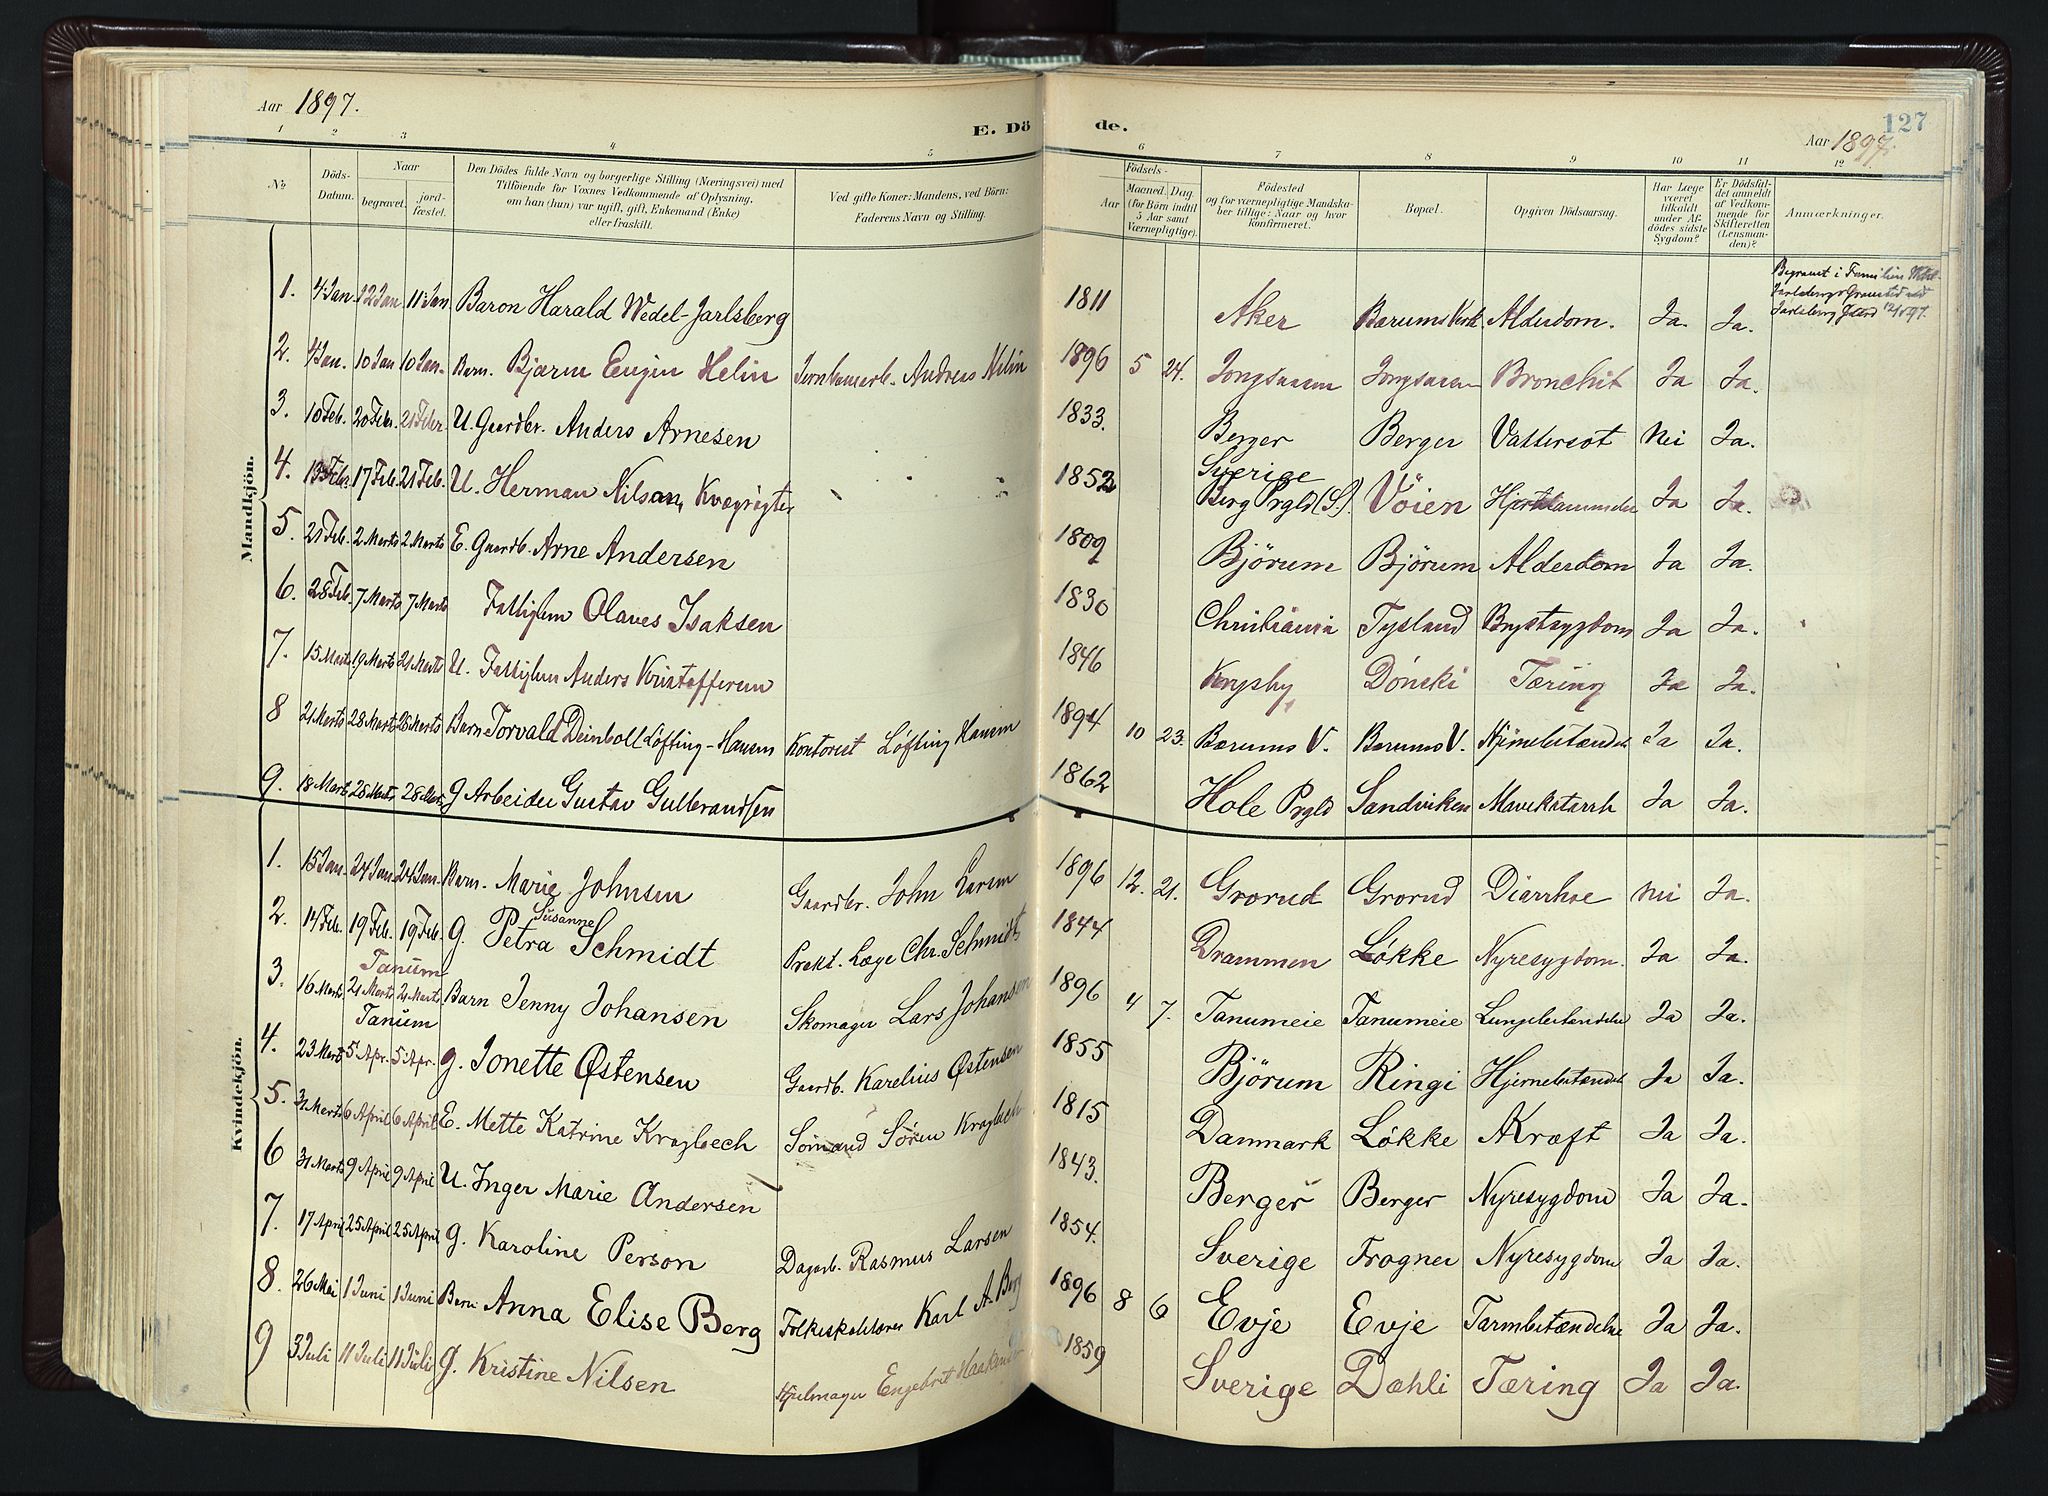 Aar 1897.
E. Dö
de.
127
Aar 1897.
1 2 3 4 5 6 7 8 9 10 11 12
№
Döds-
Datum.
Naar
begravet.
jord-
fæstet.
Den Dödes fulde Navn og borgerlige Stilling (Næringsvei) med
Tilföiende for Voxnes Vedkommende af Oplysning,
om han (hun) var ugift, gift, Enkemand (Enke)
eller fraskilt.
Ved gifte Koner: Mandens, ved Börn:
Faderens Navn og Stilling.
Födsels-
Aar
Maaned. Dag.
(for Börn indtil
5 Aar samt
Værnepligtige).
Födested
og for værnepligtige Mandska-
ber tillige: Naar og hvor
konfirmeret.
Bopæl.
Opgiven Dödsaarsag.
Har Læge
været
tilkaldt
under Af-
dödes sidste
Sygdom?
Er Dödsfal-
det anmeldt
af Vedkom-
mende for
Skifteretten
(Lensman-
den)?
Anmærkninger.
Mandkjön.
1. 4 Jan 12 Jan 11 Jan Baron Harald Wedel-Jarlsberg 1811 Aker Bærums Verk Alderdom. Ja. Ja.
Begravet i Familien Wedel-
Jarlsbergs Gravsted ved
Jarlsberg 12/1 97.
2. 4 Jan. 10 Jan 10 Jan. Barn. Bjarne Eugen Helin Andreas Helin 1896 5 24. Jongsaasen Jongsaasen Bronchit Ja Ja.
3. 10 Feb. 20 Febr. 21 Febr U. Gaardbr. Anders Arnesen 1833. Berger Berger Vattersot Nei Ja.
4. 13 Febr. 17 Feb. 21 Feb. U. Herman Nilsen, Kvægrøgter 1852 Sverige
Berg Prgld (S.) Vöien Ja Ja.
5. 21 Feb. 2 Marts 2 Marts E. Gaardb. Arne Andersen 1809 Björum Björum Alderdom Ja Ja.
6. 28 Feb. 7 Marts 7 Marts Fattiglem Olaves Isaksen 1830 Christiania Tysland Brystsygdom Ja Ja.
7. 15 Marts 19 Marts 21 Marts U. Fattiglem Anders Kristoffersen 1846 Dönski Tæring Ja Ja.
8 21 Marts 28 Marts 28 Marts Barn Torvald Deinboll Løfting-Hansen Kontorist Løfting Hansen 1894 10 23. Bærums V. Bærums V. Hjernebetændels Ja Ja.
9. 18 Marts 28 Marts 28 Mar. g Arbeider Gustav Gulbrandsen 1862 Hole Prgld Sandviken Mavekatarrh Ja Ja.
Kvindekjön.
1. 15 Jan 24 Jan 24 Jan. Barn. Marie Johnsen Gaardbr. John Larsen 1896 12. 21. Grorud Grorud Diarrhoe Nei Ja.
2. 14 Feb. 19 Feb. 19 Feb. g. Petra Susanne Schmidt Prakt. Læge Chr. Schmidt 1844 Drammen Løkke Nyresygdom. Ja Ja.
Tanum
3. 16 Marts 21 Marts 21 Marts Barn Jenny Johansen Skomager Lars Johansen 1896 4 7. Tanumeie Tanumeie Lungebetændelse Ja Ja.
Tanum
4. 23 Marts 5 Apr. 5 Apr. g. Jonette Østensen Gaardb. Karelius Østensen 1855 Björum Ringi Hjernebetændels Ja Ja.
5. 31 Marts 6 April 6 April E. Mette Katrine Kragbech Sömand Sören Kragbech 1815 Danmark Løkke Kræft Ja Ja.
6 31 Marts 9 April 9 April U. Inger Marie Andersen 1843. Berger Berger Nyresygdom Ja Ja.
7. 17 April 25 April 25 April g. Karoline Person Dagarb. Rasmus Larsen 1854. Sverige Frogner Nyresygdom Ja Ja.
8. 26 Mai 1 Juni 1 Juni Barn Anna Elise Berg Folkeskolelærer Karl A. Berg 1896 8 6 Evje Evje Tarmbetændelse Ja Ja.
9 3 Juli 11 Juli 11 Juli g. Kristine Nilsen Hjulmager Engebrit Haakensen 1859 Sverige Dæhli Tæring Ja Ja.